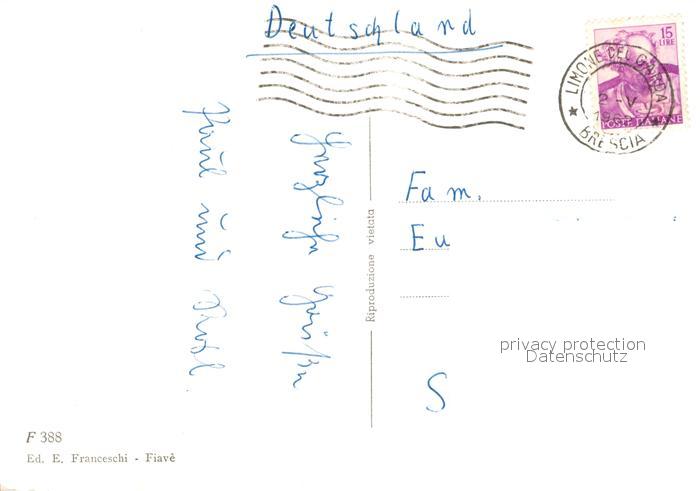 Deutschland
15
LIRE
POSTE ITALIANE
LIMONE DEL GARDA
BRESCIA
Herzliche Grüße
und
Fam.
Eu
S
Riproduzione vietata
privacy protection
Datenschutz
F 388
Ed. E. Franceschi - Fiavè